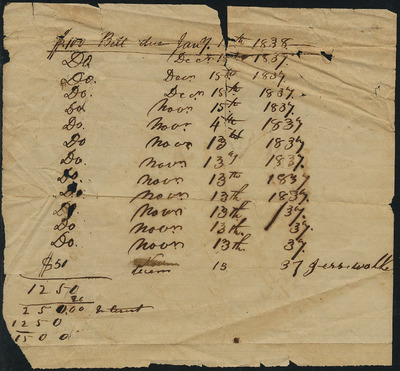 $100 Bill due Jany. 1th 1838
Do. Decr 15th 1837.
Do. Decr 15th 1837.
Do. Decr 15th 1837.
Do. Novr 15th 1837.
Do. Novr 4th 1837
Do Novr 13th 1837
Do. Novr 13 1837.
Do. Novr 13th 1837
Do. Novr 13th 1837.
Do Novr 13th 37.
Do Novr 13th. 37.
Do. Novr 13th. 37.
$50 Decem 13 37
1250
20
250.00 Interest
1250
1500